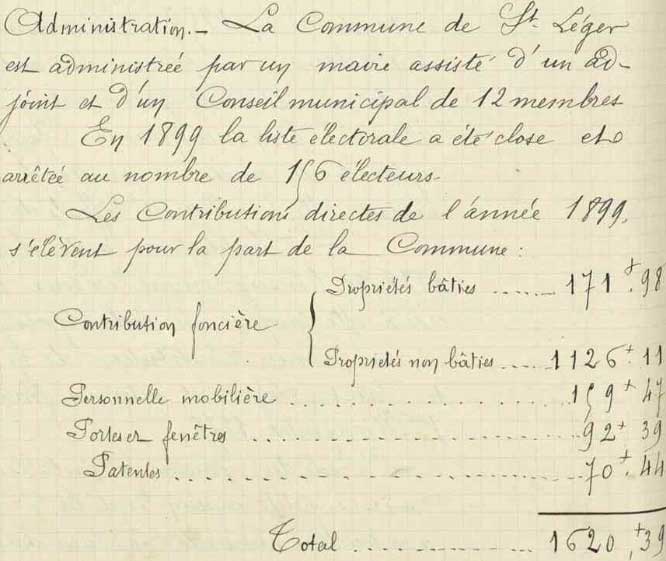 Administration. – La Commune de St. Léger
est administreé par un maire assisté d'un ad-
joint et d'un Conseil municipal de 12 membres
En 1899 la liste électorale a été close et
arrêteé au nombre de 156 électeurs.
Les Contributions directes de l'année 1899,
s'elèvent pour la part de la Commune :
Contribution foncière { Propriétés bâties ........ 171 f. 98
Propriétés non bâties ..... 1126 f. 11
Personnelle mobilière ............... 159 f 47
Portes et fenêtres ............... 92 f 39
Patentes ............... 70 f. 44
Total ............... 1620 f, 39